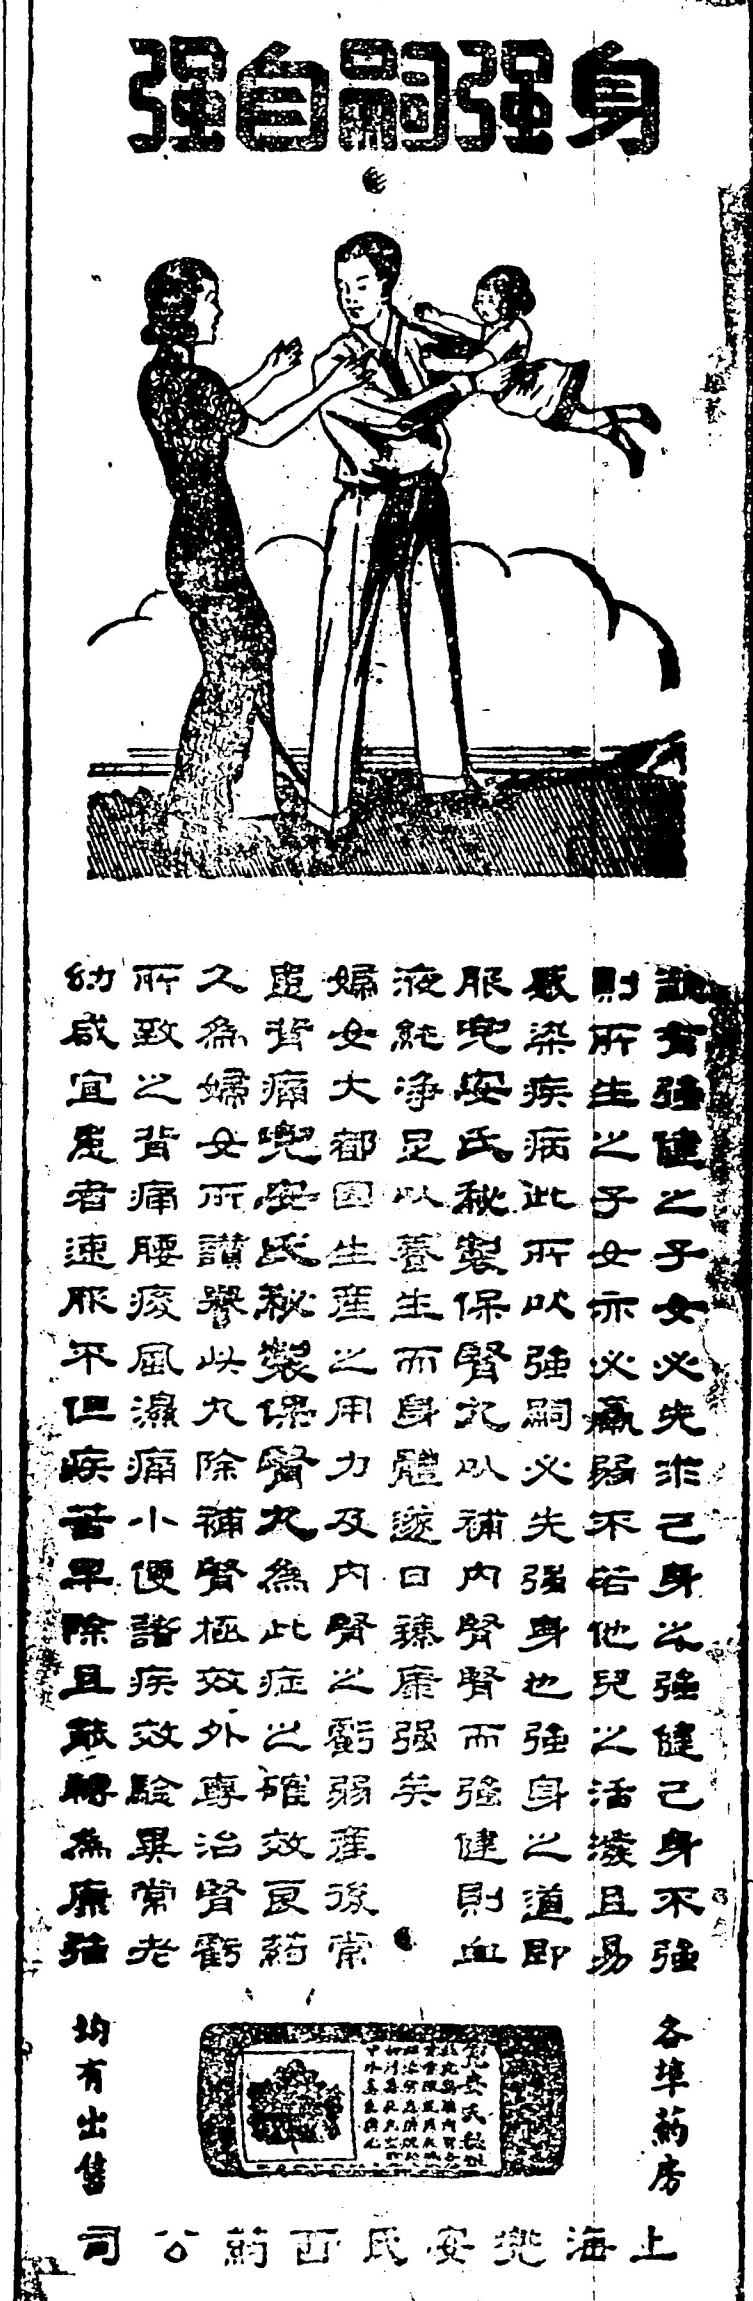 身强嗣自强
欲有強健之子女必先求己身之強健己身不強
則所生之子女亦必羸弱不若他兒之活潑且易
感染疾病此所以強嗣必先強身也強身之道即
服兜安氏秘製保腎丸以補內腎腎而強健則血
液純净足以養生而身體遂日臻康强矣
婦女大都因生產之用力及內腎之虧弱產後常
患背痛兜安氏秘製保腎丸為此症之確效良葯
久為婦女所讚譽此丸除補腎極效外專治腎虧
所致之背痛腰痠風濕痛小便諸疾效驗異常老
幼咸宜患者速服不但疾苦早除且能轉為康強
各埠葯房
均有出售
兜安氏秘製
上海兜安氏西葯公司